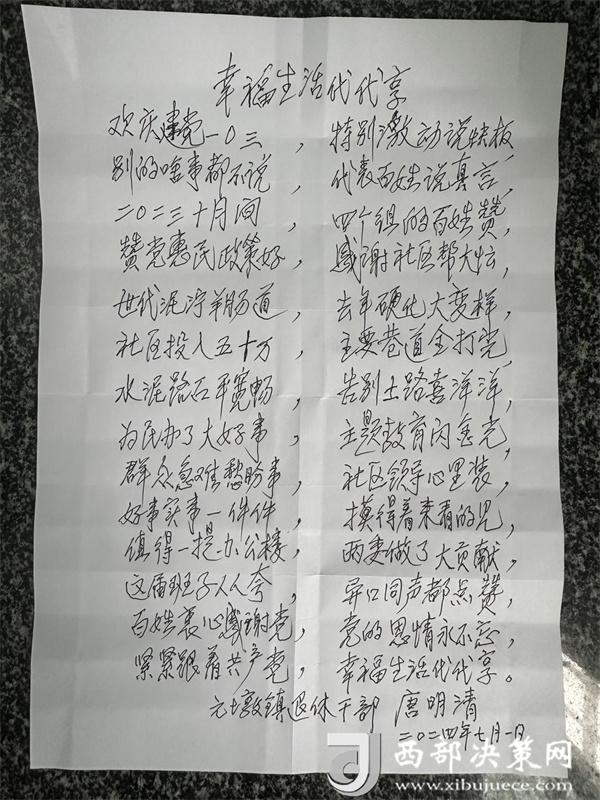 幸福生活代代享
欢庆建党一〇三，特别激动说快板，
别的啥事都不说，代表百姓说真言，
二〇二三十月间，四个组的百姓赞，
赞党惠民政策好，感谢社区帮大忙，
世代泥泞羊肠道，去年硬化大变样，
社区投入五十万，主要巷道全打完，
水泥路面平宽畅，告别土路喜洋洋，
为民办了大好事，主题教育闪金光，
群众急难愁盼事，社区领导心里装，
好事实事一件件，摸得着来看的见，
值得一提办公楼，两委做了大贡献，
这届班子人人夸，异口同声都点赞，
百姓衷心感谢党，党的恩情永不忘，
紧紧跟着共产党，幸福生活代代享。
元墩镇退休干部 唐明清
二〇二四年七月一日
西部决策网
www.xibujuece.com